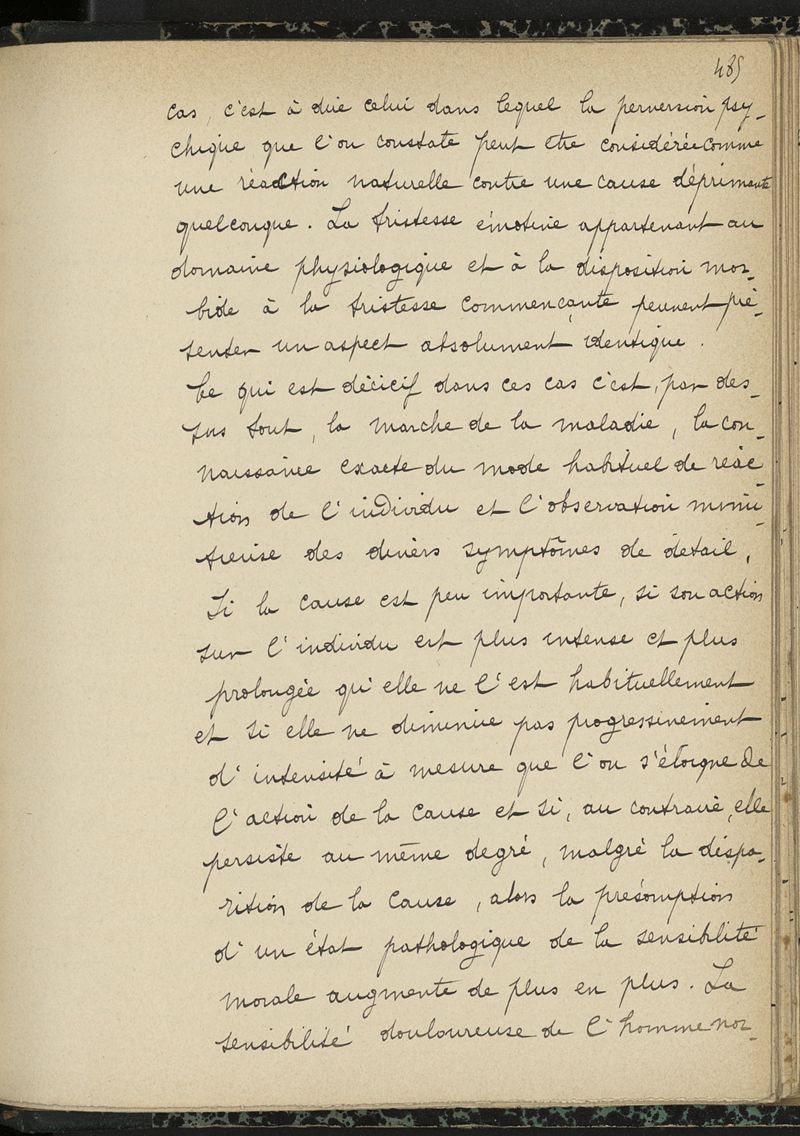 485
cas, c'est à dire celui dans lequel la perversion psy-
chique que l'on constate peut etre considérée comme
une réaction naturelle contre une cause déprimante
quelconque. La tristesse émotive appartenant au
domaine physiologique et à la disposition mor-
bide à la tristesse commençante peuvent pré-
senter un aspect absolument identique.
Ce qui est décicif dans ces cas c'est, par des-
sus tout, la marche de la maladie, la con-
naissance exacte du mode habituel de réac-
tion de l'individu et l'observation minu-
tieuse des divers symptômes de détail,
Si la cause est peu importante, si son action
sur l'individu est plus intense et plus
prolongée qu'elle ne l'est habituellement
et si elle ne diminue pas progressivement
d'intensité à mesure que l'on s'éloigne de
l'action de la cause et si, au contraire, elle
persiste au même degré, malgré la dispa-
rition de la cause, alors la présomption
d'un état pathologique de la sensibilité
morale augmente de plus en plus. La
sensibilité douloureuse de l'homme nor-